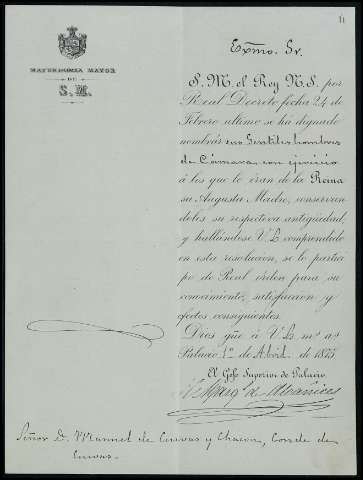 11
MAYORDOMIA MAYOR
DE
S. M.
Exmo. Sr.
S. M. el Rey N. S. por
Real Decreto fecha 24 de
Febrero ultimo se há dignado
nombrár sus Gentiles hombres
de Cámara con ejercicio
á los que lo eran de la Reina
su Augusta Madre, conservan
doles su respectiva antigüedad,
y hallándose V. E. comprendido
en esta resolucion, se lo partici
po de Real órden para su
conocimiento, satisfaccion y
efectos consiguientes.
Dios gue. á V. E. ms. as.
Palacio 1º de Abril de 1875
El Gefe Superior de Palacio
El Marqs. de Alcañices
Señor D. Manuel de Cuevas y Chacon, Conde de
Cuevas.